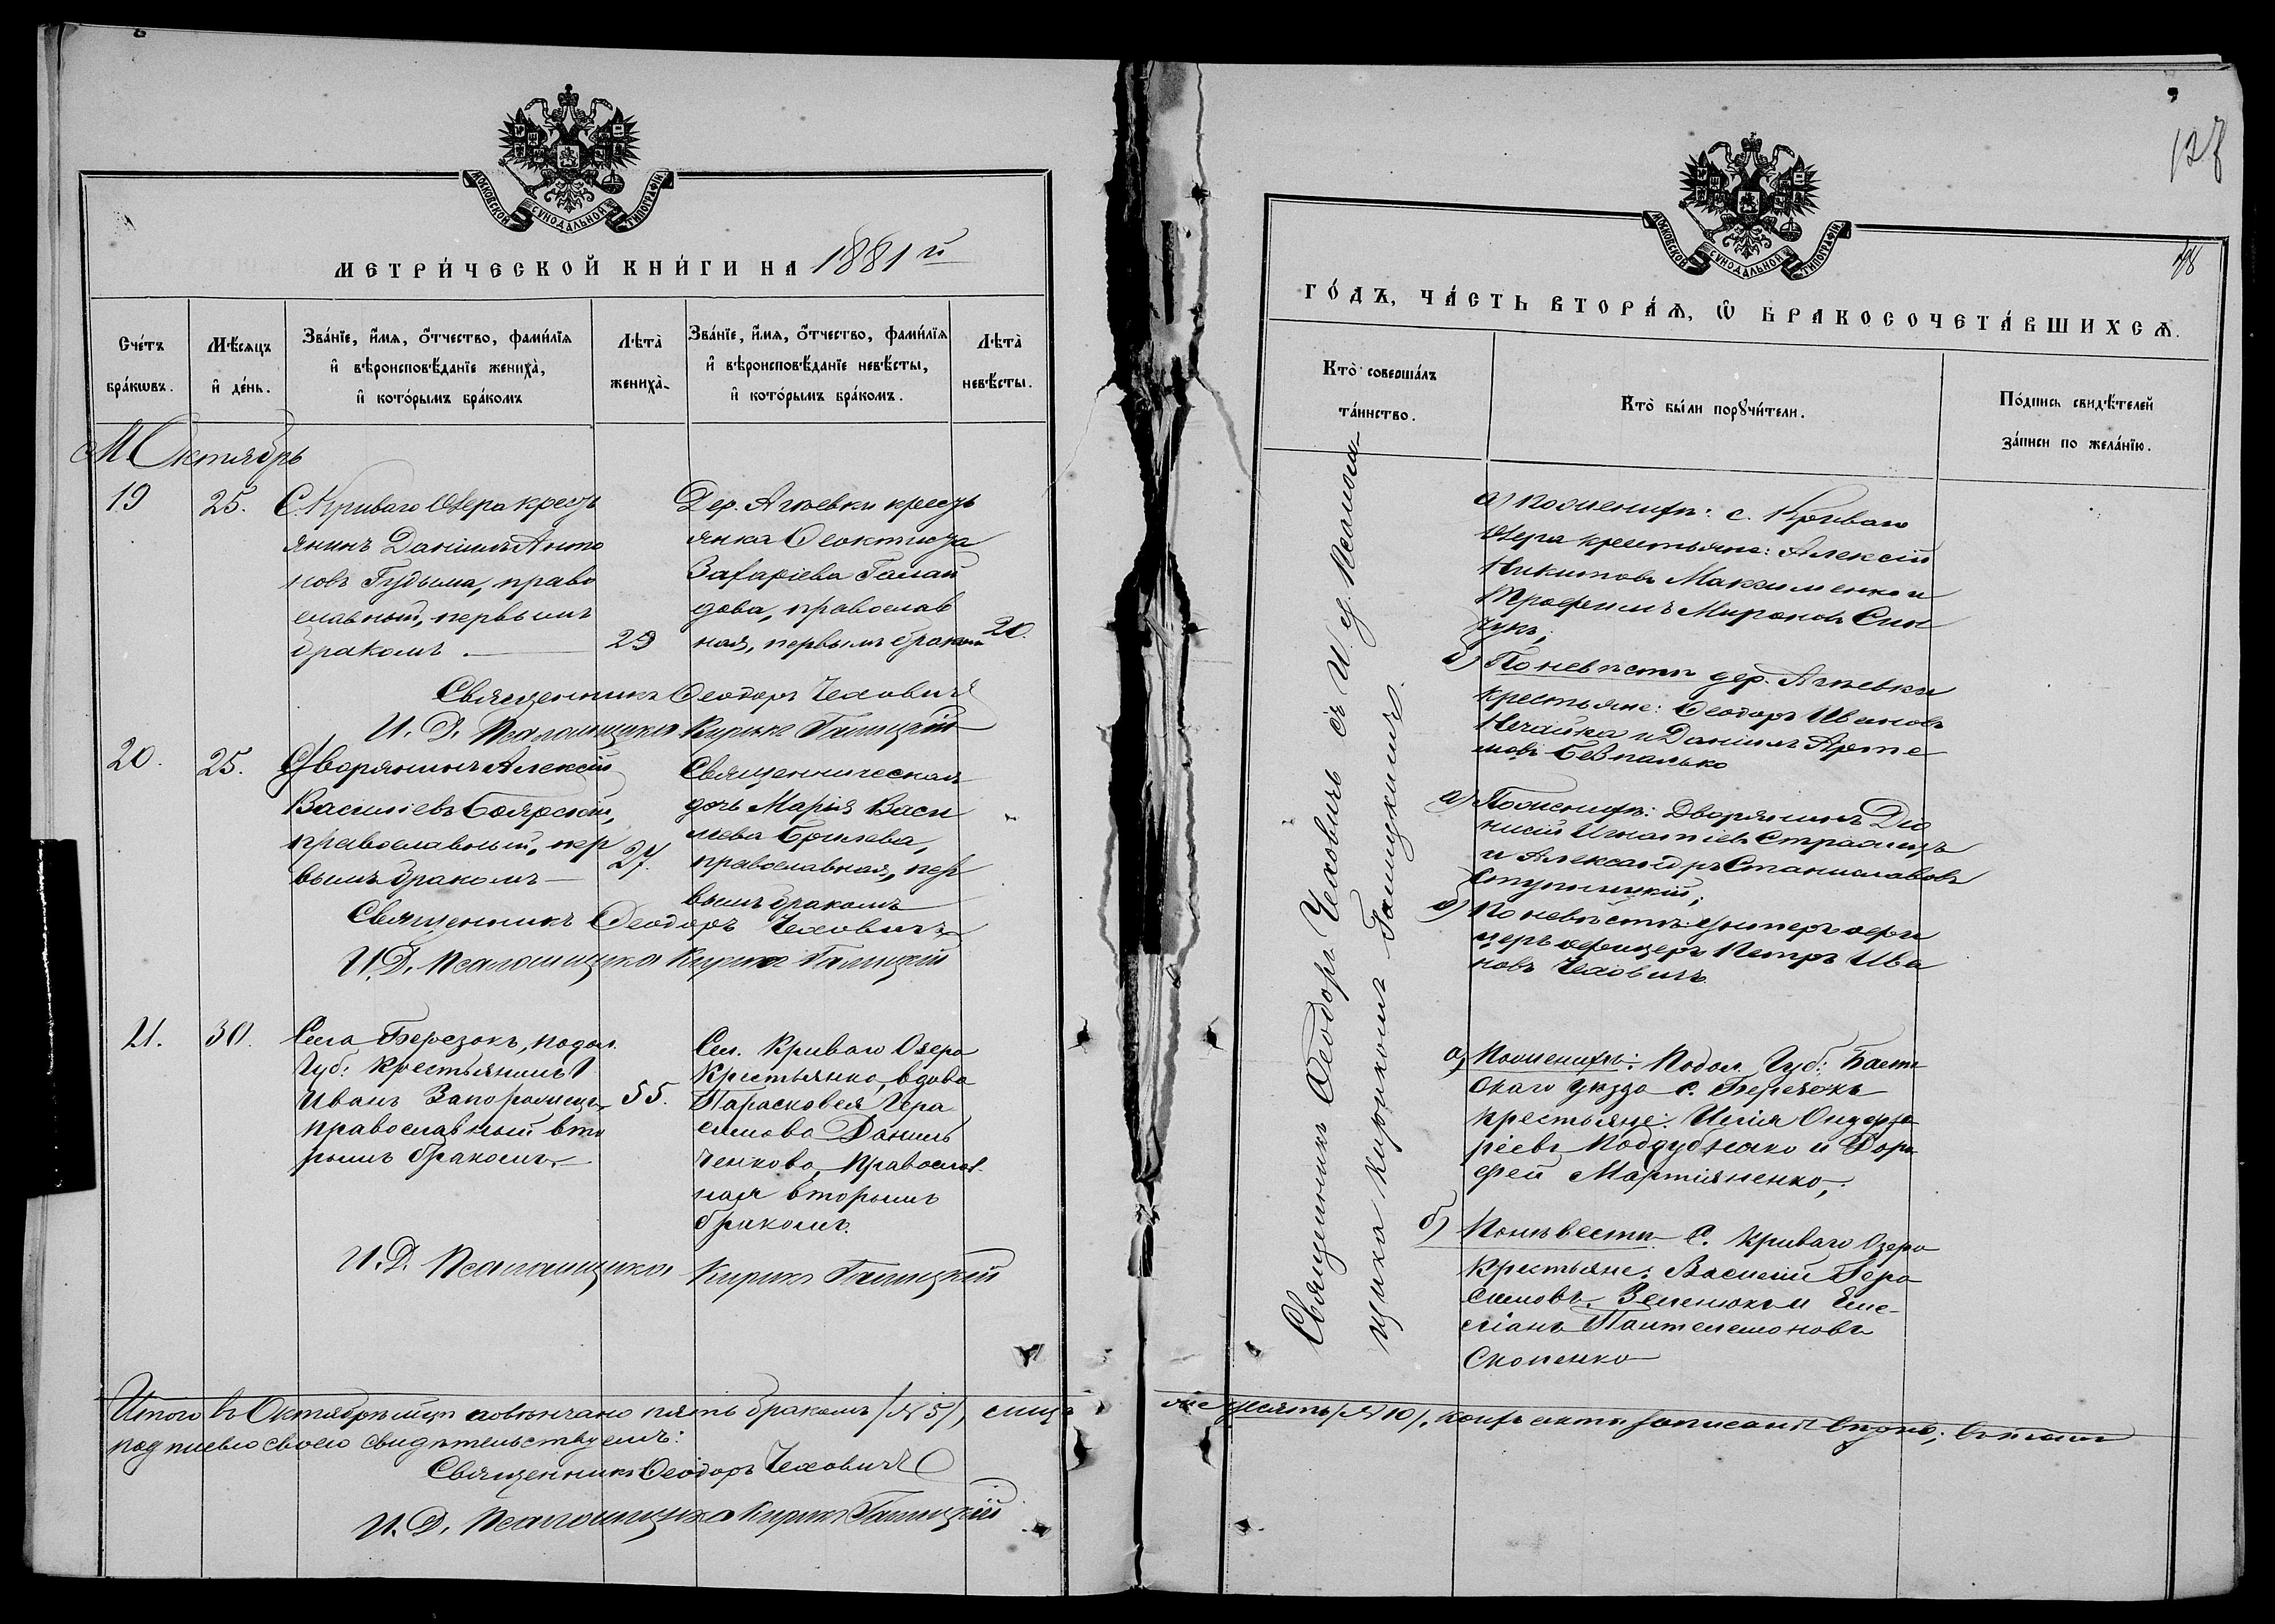 МОСКОВСКОЙ СѴНОДАЛЬНОЙ ТИПОГРАФІИ
МЕТРИ́ЧЕСКОЙ КНИ́ГИ НА 1881й
Сче́тъ бра́ковъ.
Мѣ́сяцъ и де́нь.
Зва́нїе, и́мѧ, о́тчество, фами́лїѧ
и вѣроисповѣ́данїе жениха̀,
и кото́рымъ бра́комъ
Лѣта̀ жениха̀.
Зва́нїе, и́мѧ, о́тчество, фами́лїѧ
и вѣроисповѣ́данїе невѣ́сты,
и кото́рымъ бра́комъ.
Лѣта̀ невѣ́сты.
М. Октябрь
19
25.
С. Криваго Озера кресть
янинъ Даніилъ Анто
новъ Гудыма, право
славный, первымъ
бракомъ.
29
Дер. Агѣевки кресть
янка Ѳеоктиста
Захаріева Галай
дова, православ
ная, первымъ бракомъ
20.
Священникъ Ѳеодоръ Чеховичъ
И. Д. Псаломщика Кирикъ Галицкій
20.
25.
Дворянинъ Алексій
Василіевъ Боярскій,
православный, пер
вымъ бракомъ
27.
Священническая
дочь Марія Васи
лева
православная, пер
вымъ бракомъ
Священникъ Ѳеодоръ Чеховичъ
И. Д. Псаломщика Кирикъ Галицкій
21.
30.
Села Березокъ, подол.
Губ: крестьянинъ
Иванъ Запорожецъ
православный вто
рымъ бракомъ.
55.
Сел. Криваго Озера
Крестьянка, вдова
Парасковея Гера
симова Даниль
ченкова, Православ-
ная вторымъ
бракомъ.
И. Д. Псаломщика Кирикъ Галицкій
Итого въ Октябрѣ м-цѣ повѣнчано пять браковъ /№ 5/, лицъ
подписью своею свидѣтельствуемъ:
Священникъ Ѳеодоръ Чеховичъ
И. Д. Псаломщика Кирикъ Галицкій
128
МОСКОВСКОЙ СѴНОДАЛЬНОЙ ТИПОГРАФІИ
ГО́ДЪ, ЧА́СТЬ ВТОРА́Ѧ, Ѽ БРАКОСОЧЕТА́ВШИХСѦ.
Кто̀ соверша́лъ
та́инство.
Кто̀ бы́ли порꙋчи́тели.
По́дпись свидѣ́телей
за́писи по жела́нїю.
Священникъ Ѳеодоръ Чеховичъ съ И. д. Псалом-
щика Кирикомъ Галицкимъ.
а) по женихѣ: с. Криваго
Озера крестьяне: Алексій
Никитовъ Максименко и
Трофимъ Мироновъ Син
чукъ;
б) По невѣстѣ дер. Агѣевки
крестьяне: Ѳеодоръ Ивановъ
Нечайка и Даніилъ Арте
мовъ Безпалько
а) По женихѣ: Дворянинъ Дио
нисій Игнатіевъ
и Александръ Станиславовъ
Ступницкій;
б) По невѣстѣ: Унтеръ офи
церъ офицеръ Петръ Ива
новъ Чеховичъ.
а) По женихѣ: Подол. Губ: Балт-
скаго уѣзда с. Березокъ
крестьяне: Илія
Поддубнако и Доро
фей Мартіяненко;
б) По нѣвести с. Криваго Озера
Крестьяне: Василій Гера
симовъ Зеленюкъ и Еме-
ліанъ Пантелемоновъ
Скопенко
десять /№ 10/,